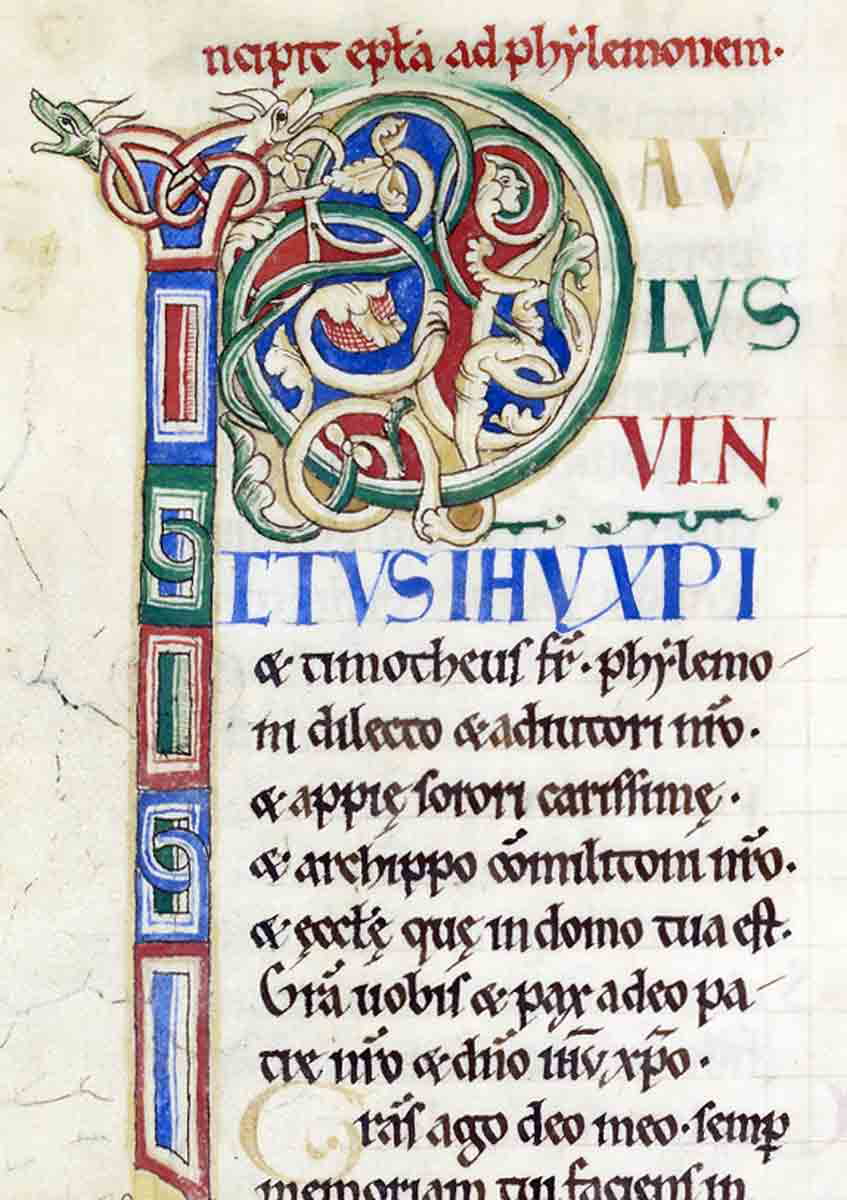 ncipit epła ad phylemonem.
P
AV
LVS
VIN
CTVS IHV XPI
& timotheus fr̄. phylemo
ni dilecto & adiutori nr̄o.
& appię sorori carissimę.
& archippo cōmilitoni nr̄o.
& ęccłę quę in domo tua est.
Grā uobis & pax a deo pa
tre nr̄o & dn̄o ih̄u xp̄o.
Grās ago deo meo. semꝑ
memoriam tui faciens in